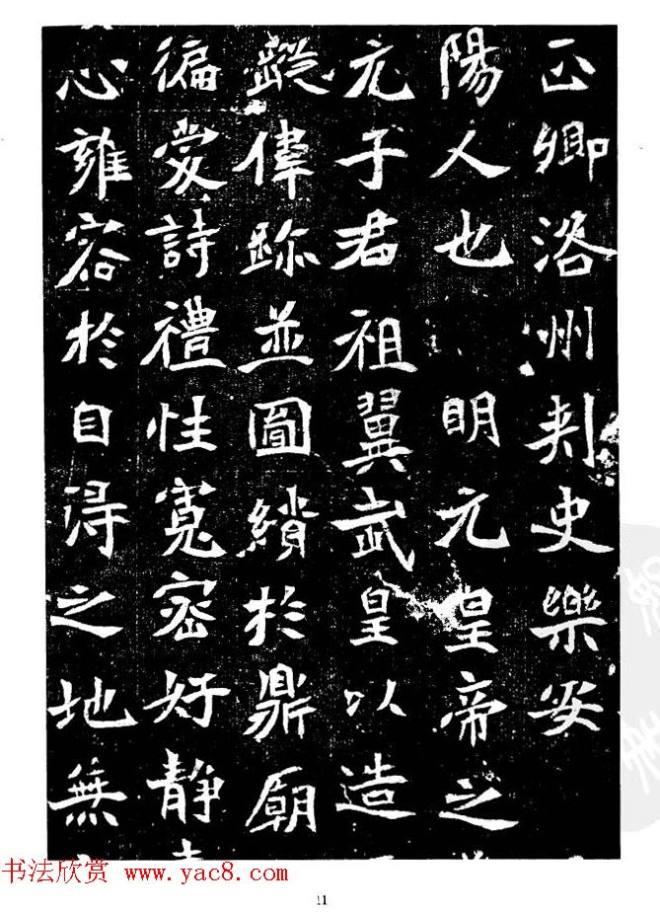 正卿洛州刺史樂安
陽人也 明元皇帝之
元子君祖翼武皇以造
蹤偉跡並圖績於鼎廟
徧愛詩禮性寬密好靜
心雍容於自淂之地無
书法欣赏 www.yac8.com
11